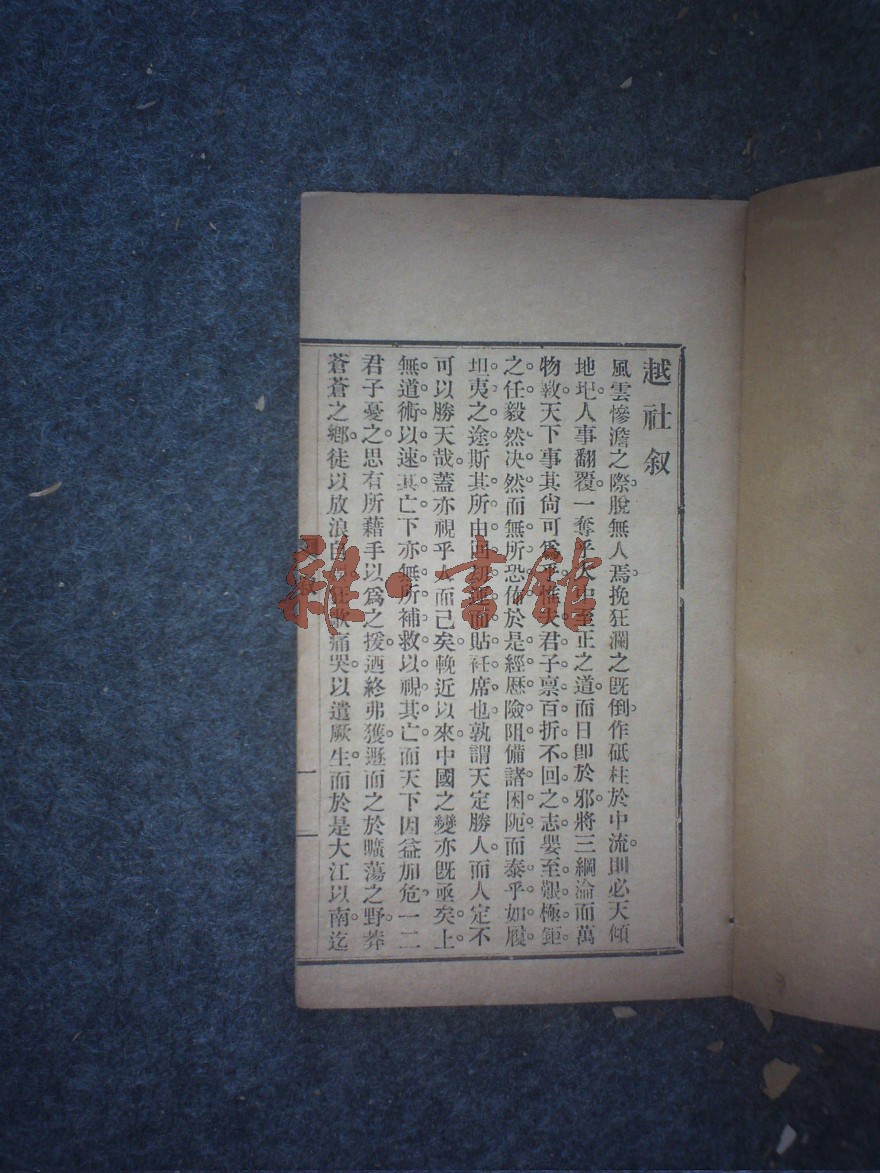 越社叙
風雲慘澹之際。脫無人焉。挽狂瀾之旣倒。作砥柱於中流。則必天傾
地圮。人事翻覆。一奪乎大中至正之道。而日卽於邪。將三綱淪而萬
物斁。天下事其尙可爲乎。惟夫君子禀百折不回之志。嬰至艱極鉅
之任。毅然决然而無所恐怖。於是經歷險阻。備諸困阨。而泰乎如履
坦夷之途。斯其所由 而貼衽席也。孰謂天定勝人。而人定不
可以勝天哉。蓋亦視乎人而已矣。輓近以來。中國之變亦旣亟矣。上
無道術以速其亡。下亦無所補救以視其亡。而天下因益加危。一二
君子憂之。思有所藉手以爲之援。迺終弗獲。遯而之於曠蕩之野。莽
蒼蒼之鄉。徒以放浪 歌痛哭。以遣厥生。而於是大江以南。迄
一
雜·書館